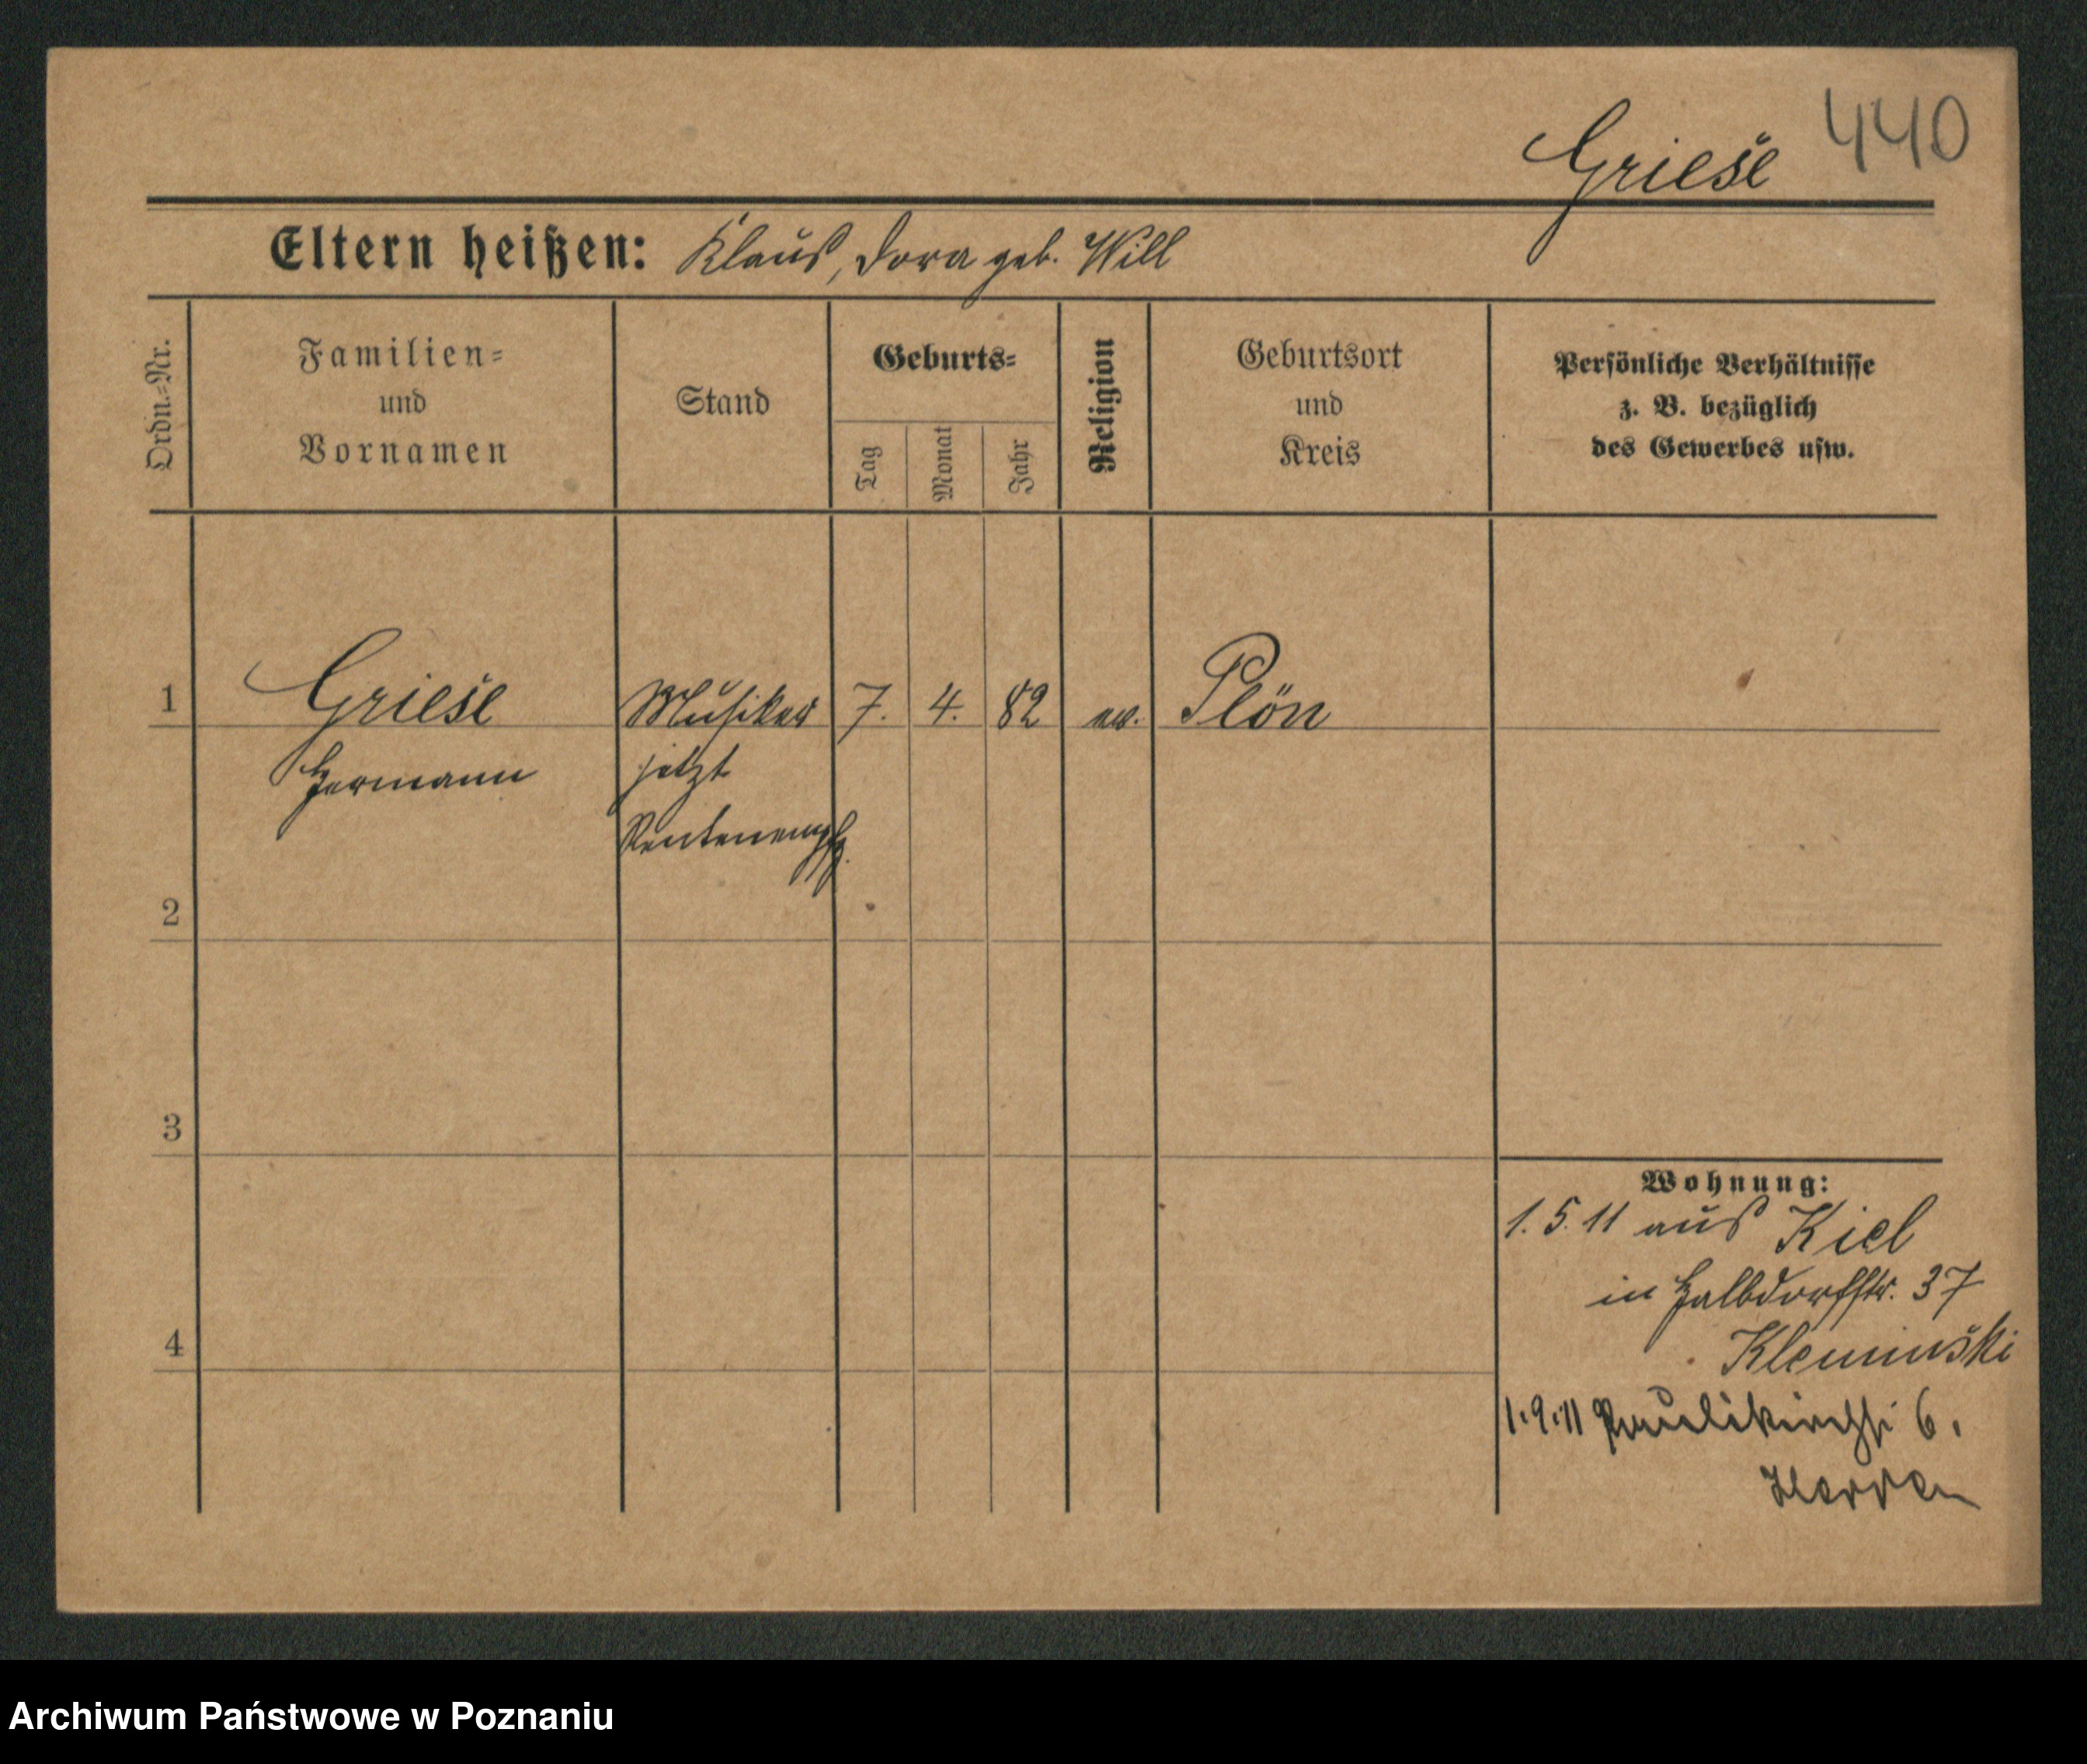 440
Griese
Eltern heißen: Klaus, Dora geb. Will
Ordn.=Nr.
Familien=
und
Vornamen
Stand
Geburts=
Tag
Monat
Jahr
Religion
Geburtsort
und
Kreis
Persönliche Verhältnisse
z. B. bezüglich
des Gewerbes usw.
1 Griese Musiker 7. 4. 82 ev. Plön
Hermann jetzt
Rentenempfg.
2
3
4
Wohnung:
1. 5. 11 aus Kiel
in Halbdorfstr. 37
1.9.11 Paulikirchstr 6.
Archiwum Państwowe w Poznaniu